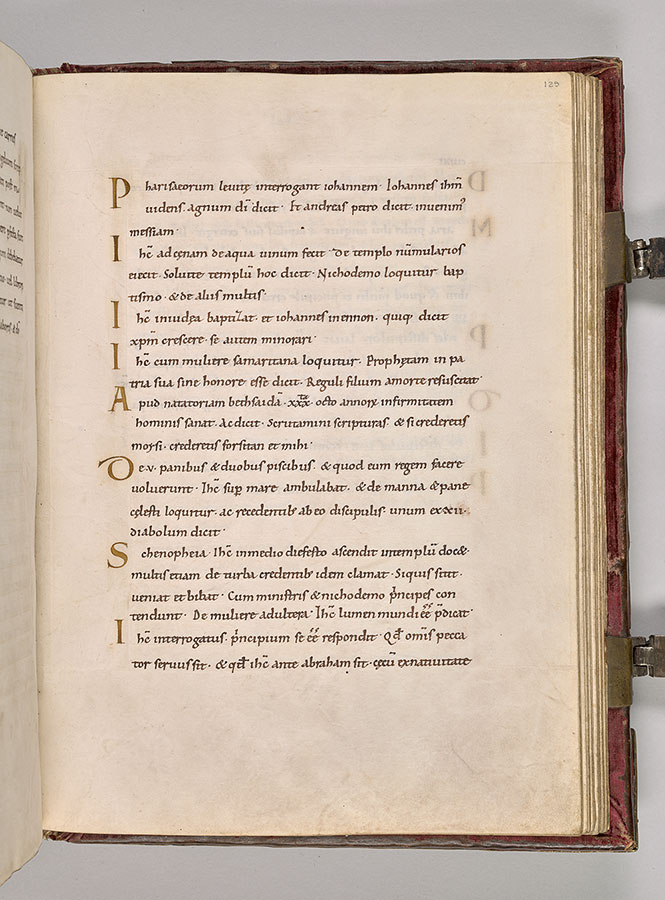 139
Pharisaeorum leuitę interrogant iohannem · Iohannes ihm̄
uidens · agnum dī dicit · Et andreas petro dicit · inuenim᾽
messiam ·
Ihc̄ ad cęnam de aqua uinum fecit · De templo nūmularios
eiecit · Soluite templū hoc dicit · Nichodemo loquitur bap
tismo · & de aliis multis ·
Ihc̄ in iudęa baptizat · et iohannes in ennon · quiq; dicit
xp̄m crescere · se autem minorari ·
Ihc̄ cum muliere samaritana loquitur · Prophętam in pa
tria sua sine honore esse dicit · Reguli filium a morte resuscitat ·
Apud natatoriam bethsaidā · xxx · octo annorꝝ infirmitatem
hominis sanat · Ac dicit · Scrutamini scripturas · & si crederetis
moysi · crederetis forsitan et mihi ·
De · v · panibus & duobus piscibus · & quod eum regem facere
uoluerunt · Ihc̄ sup̄ mare ambulabat · & de manna & pane
cęlesti loquitur · ac recedentib; ab eo discipulis · unum ex xii ·
diabolum dicit ·
Schenopheia · Ihc̄ in medio die festo ascendit in templū doc& ·
multis etiam de turba credentib; idem clamat · Siquis sitit ·
ueniat et bibat · Cum ministris & nichodemo p̄ncipes con
tendunt · De muliere adultera · Ihc̄ lumen mundi eē p̄dicat ·
Ihc̄ interrogatus · p̄ncipium se eē respondit · Qd̄ omīs pecca
tor seruus sit · & qd̄ ihc̄ ante abraham sit · cęcū ex natiuitate